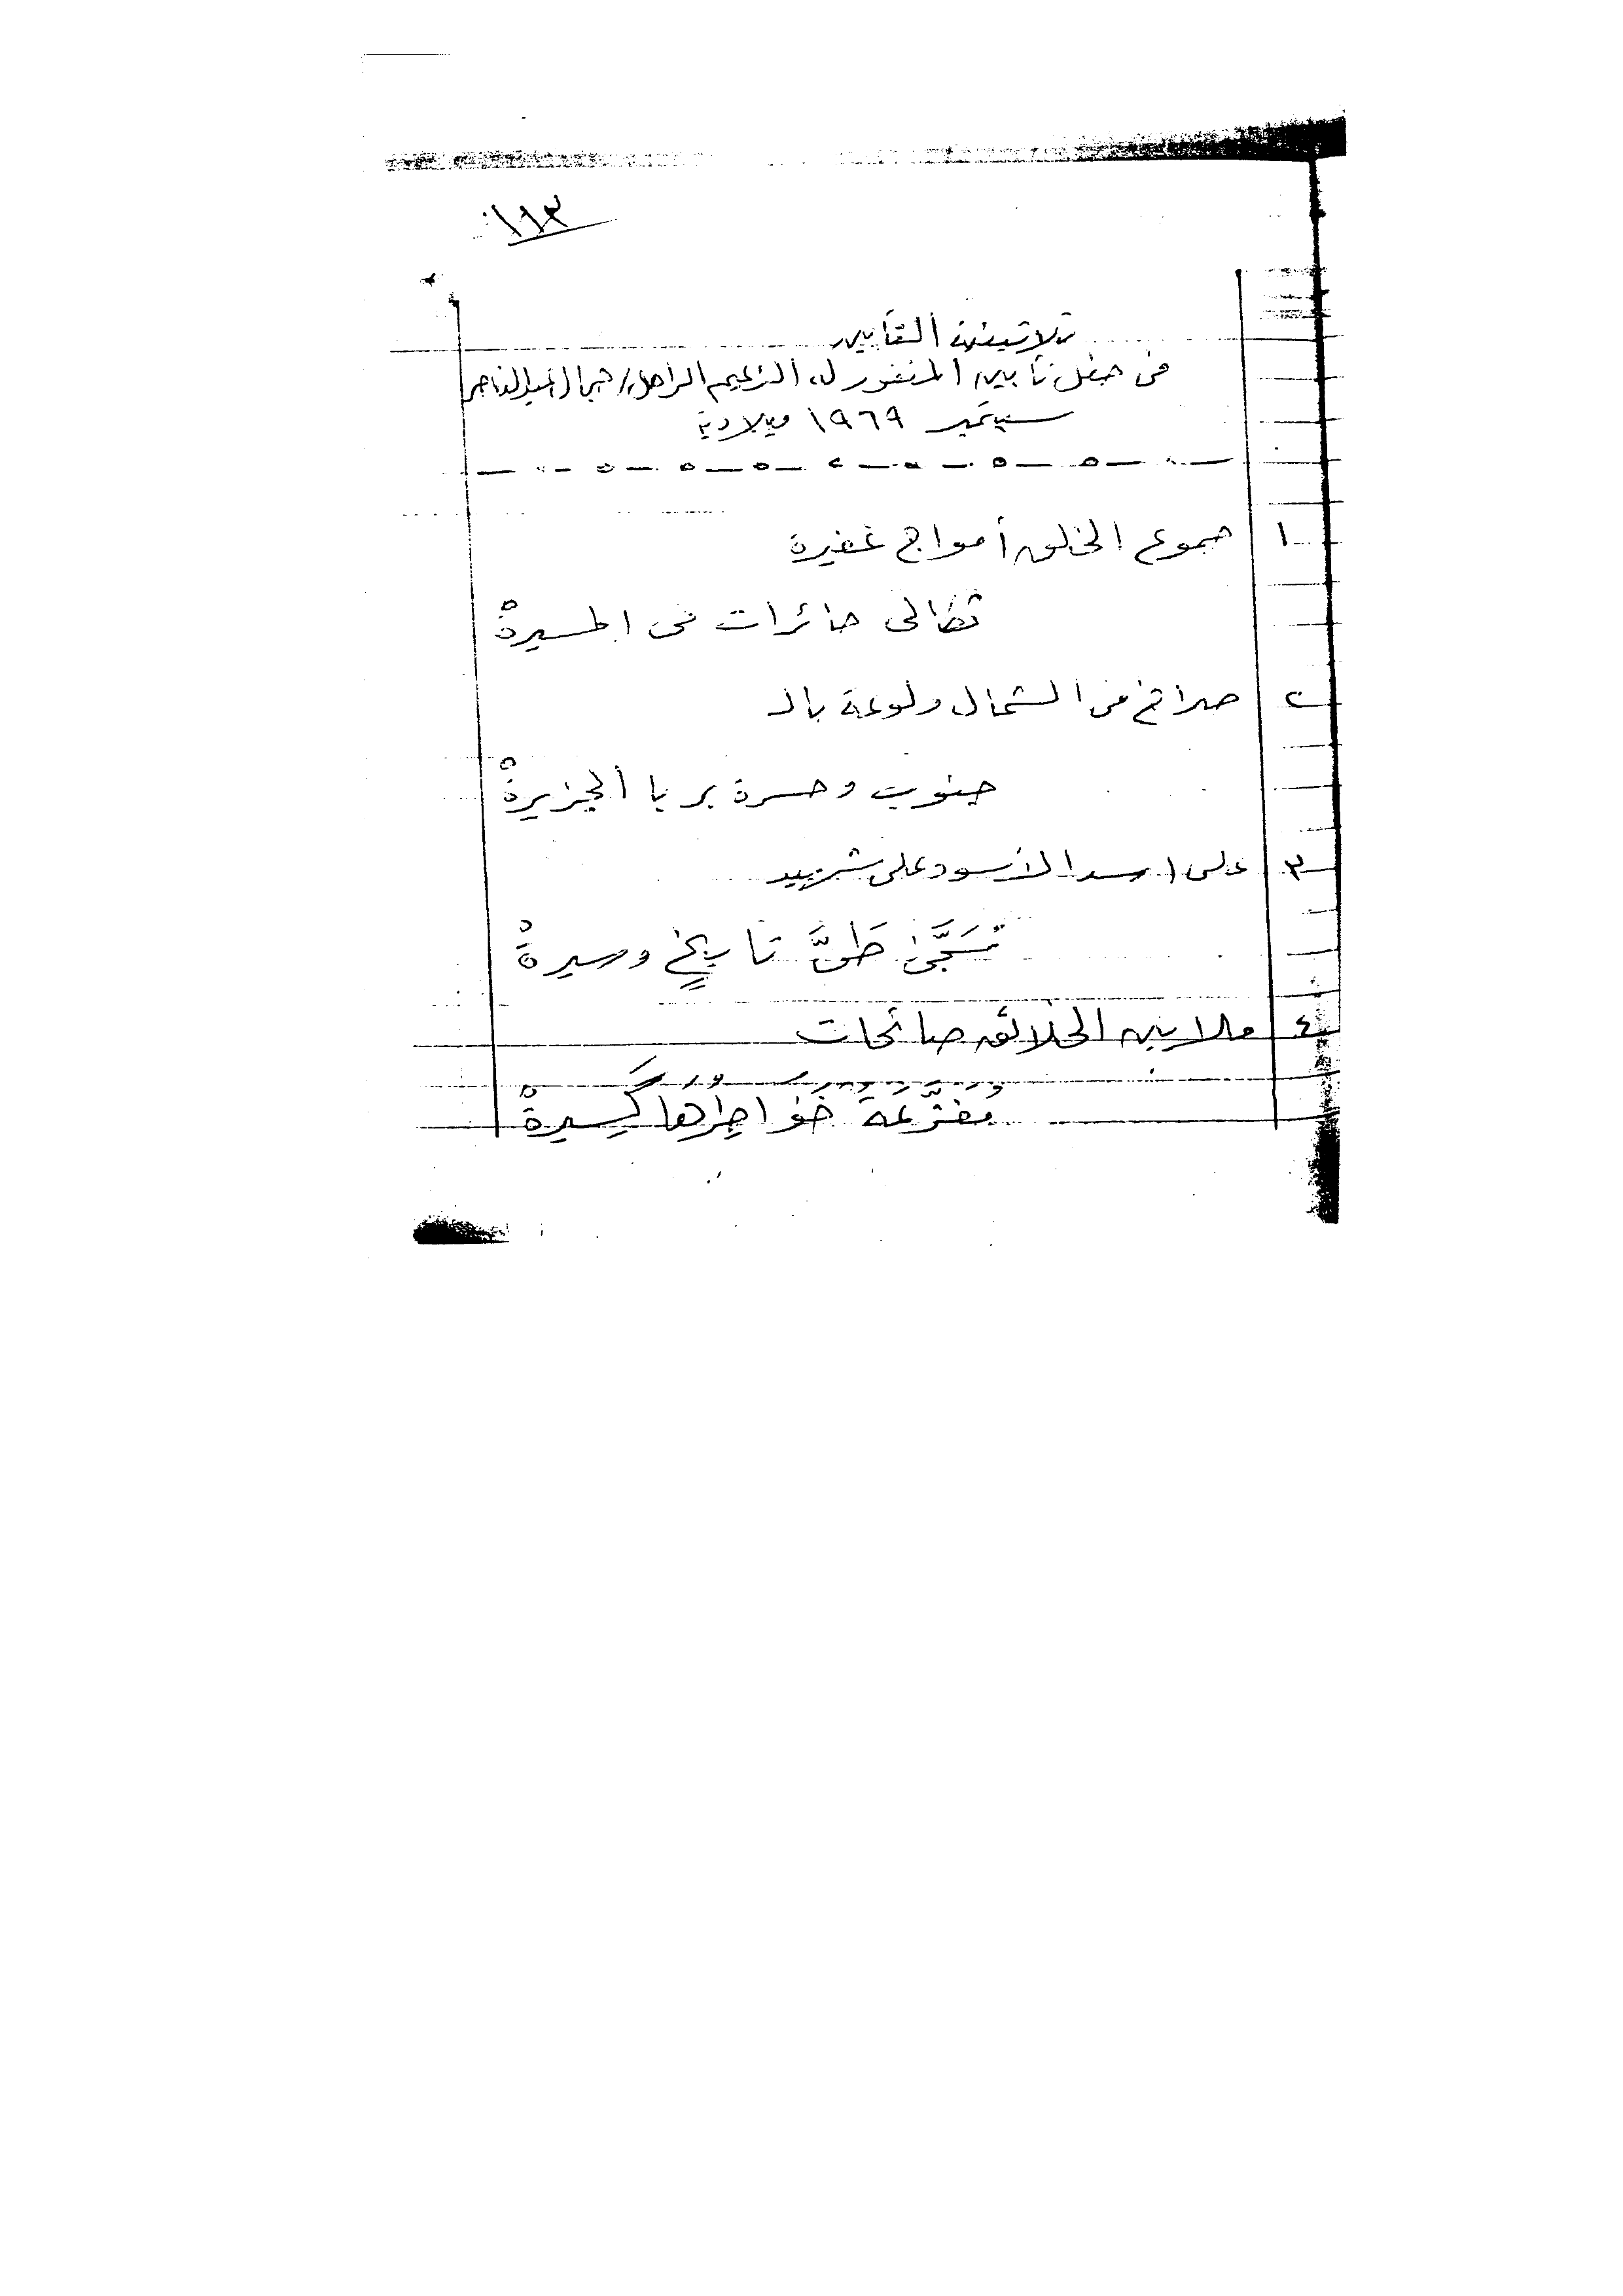 ١١٣
ثلاثينية التأبين
فى حفل تأبين المغفور له الزعيم الراحل/ جمال عبد الناصر
سبتمبر ١٩٦٩ ميلادية
١ جموع الخلق أمواج غفيرة
ثكالى حائرات فى المسيرةْ
٢ صراخ فى الشمال ولوعة بالـ
جنوب وحسرة بربا الجزيرةْ
٣ على اسد الأسود على شهيد
تَسَجَّى طَىَّ تاريخٍ وسيرةْ
٤ ملايين الخلائق صائحات
مُفَزَّعَةٌ خَواطِرُها كَسِيرةْ